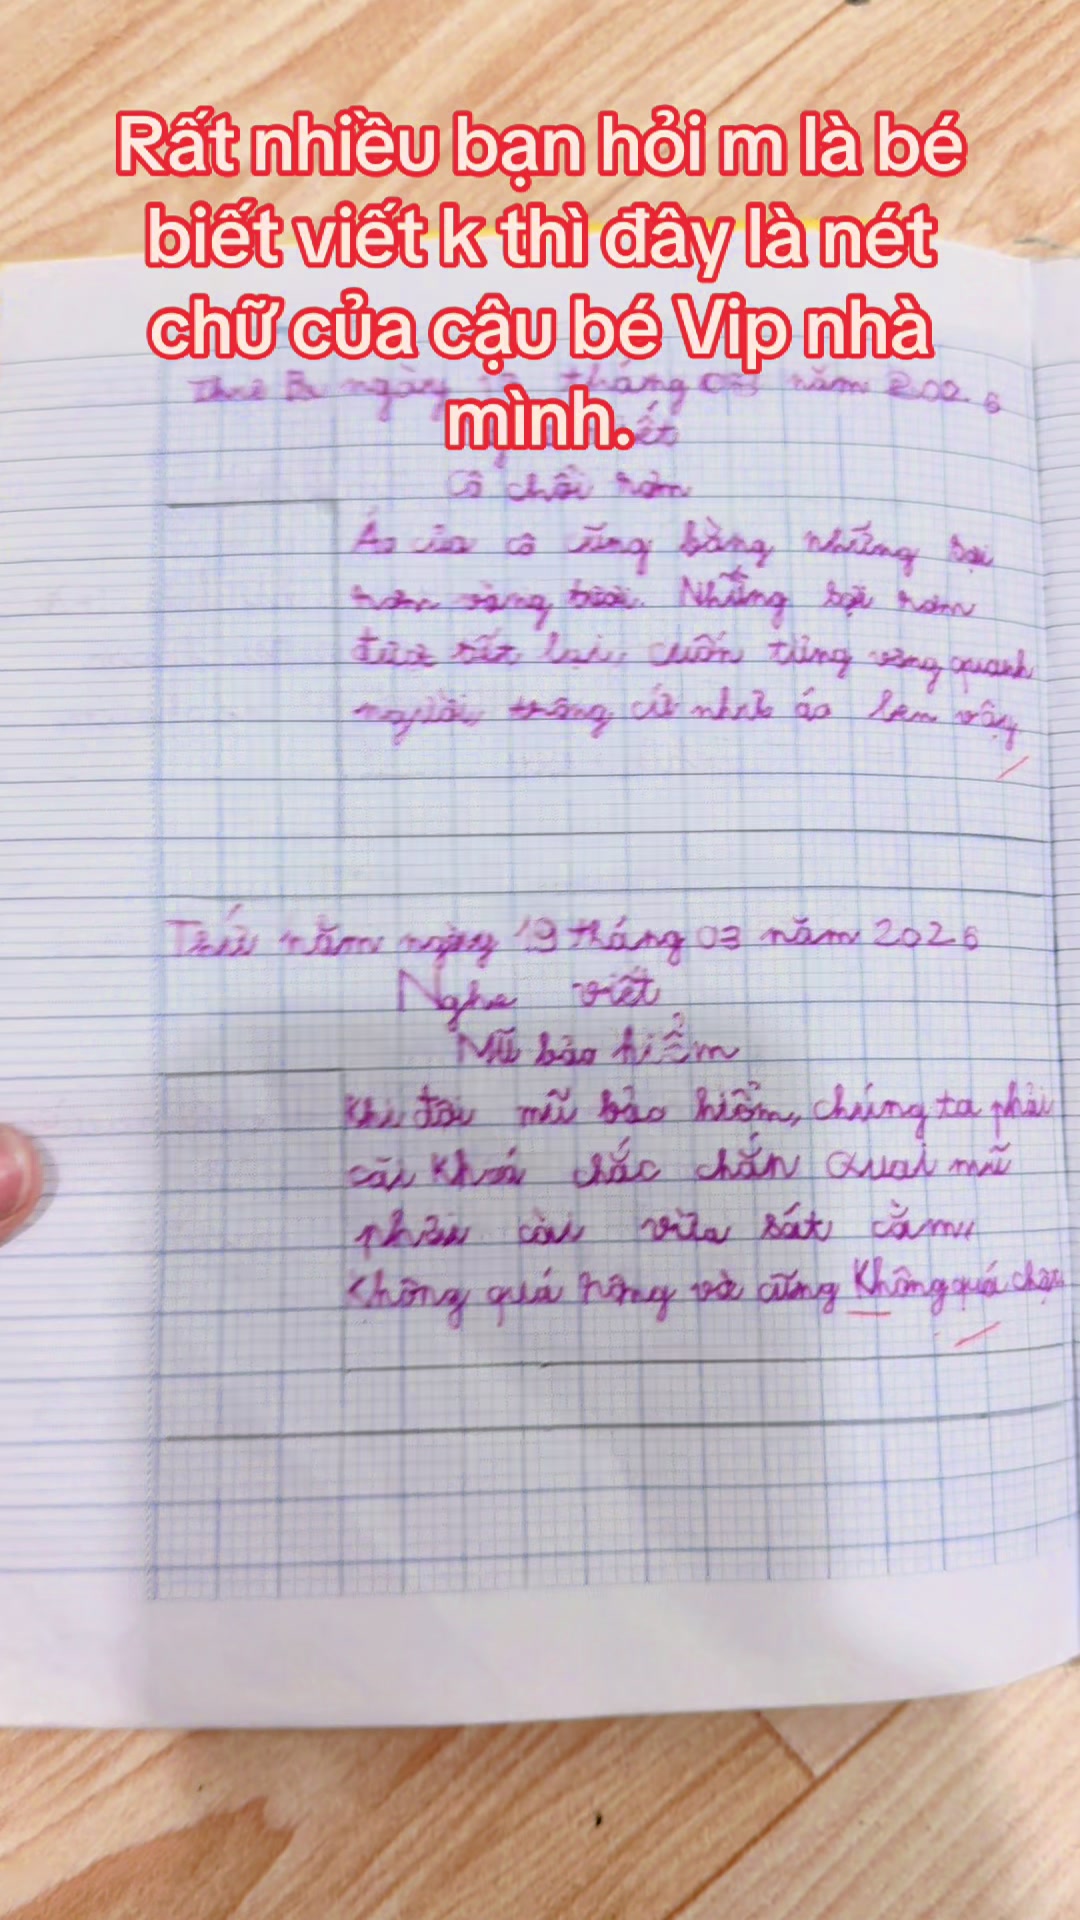 Rất nhiều bạn hỏi m là bé
biết viết k thì đây là nét
chữ của cậu bé Vip nhà
mình.
ngày tháng 03 năm 2026
viết
Cô chổi rơm
Áo của cô cũng bằng những sợi
rơm vàng tươi. Những sợi rơm
được tết lại, cuốn từng vòng quanh
người, trông cứ như áo len vậy
Thứ năm ngày 19 tháng 03 năm 2026
Nghe viết
Mũ bảo hiểm
Khi đội mũ bảo hiểm, chúng ta phải
cài khoá chắc chắn Quai mũ
phải cài vừa sát cằm,
không quá rộng và cũng không quá chật